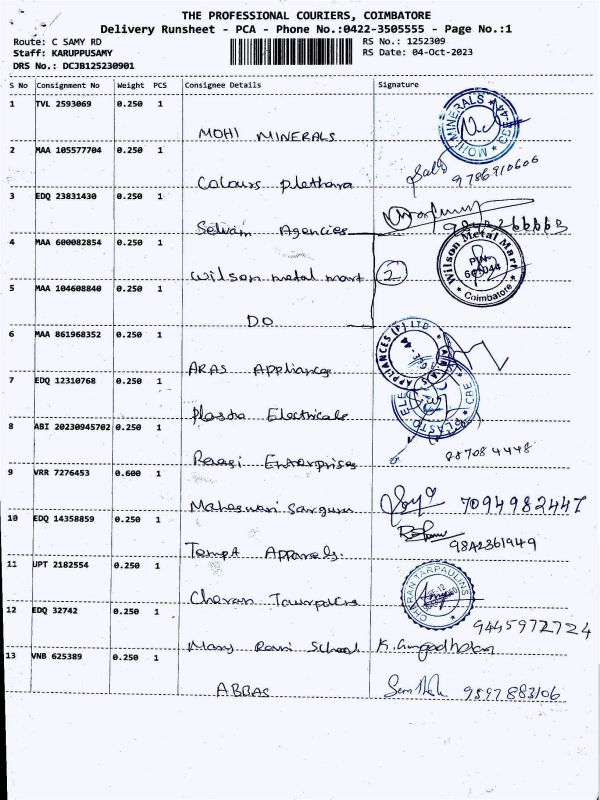 THE PROFESSIONAL COURIERS, COIMBATORE
Delivery Runsheet - PCA - Phone No.:0422-3505555 - Page No.:1
Route: C SAMY RD
RS No.: 1252309
Staff: KARUPPUSAMY
RS Date: 04-Oct-2023
DRS No.: DCJB125230901
S No Consignment No Weight PCS Consignee Details Signature
1 TVL 2593069 0.250 1
MOHI MINERALS
MOHI MINERALS CBE-44
2 MAA 105577704 0.250 1
Colours plethara
9786910606
3 EDQ 23831430 0.250 1
Selvam Agencies
4 MAA 600082854 0.250 1
Wilson metal mart 2
Wilson Metal Mart Coimbatore
5 MAA 104608840 0.250 1
DO
6 MAA 861968352 0.250 1
ARAS Appliances
ARAS APPLIANCES (P) LTD
7 EDQ 12310768 0.250 1
Plasto Electricals
PLASTO ELE CBE
8 ABI 20230945702 0.250 1
Raagi Enterprises
9 VRR 7276453 0.600 1
Maheswari Sargum 7094982447
10 EDQ 14358859 0.250 1
Tempt Apparels. 9842361949
11 UPT 2182554 0.250 1
Charan Taurpalins
CHARAN TARPAULINS
9445972724
12 EDQ 32742 0.250 1
Mary Rani School
13 VNB 625389 0.250 1
ABBAS 9597883106